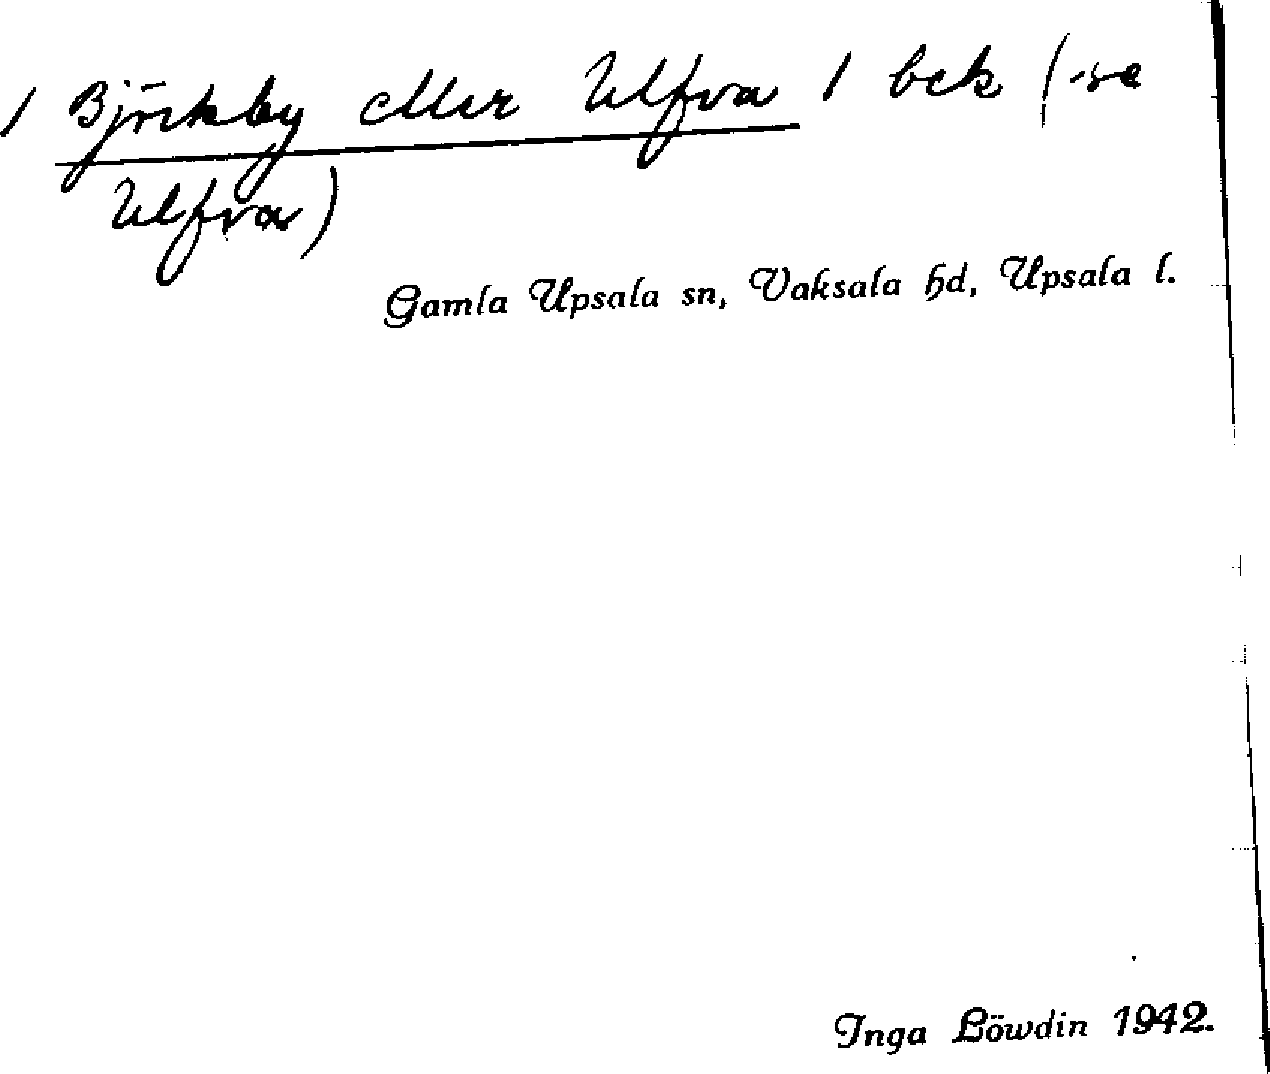 / Björkby eller Ulfva / bek (se
Ulfva)
Gamla Upsala sn, Vaksala hd, Upsala l.
Inga Löwdin 1942.